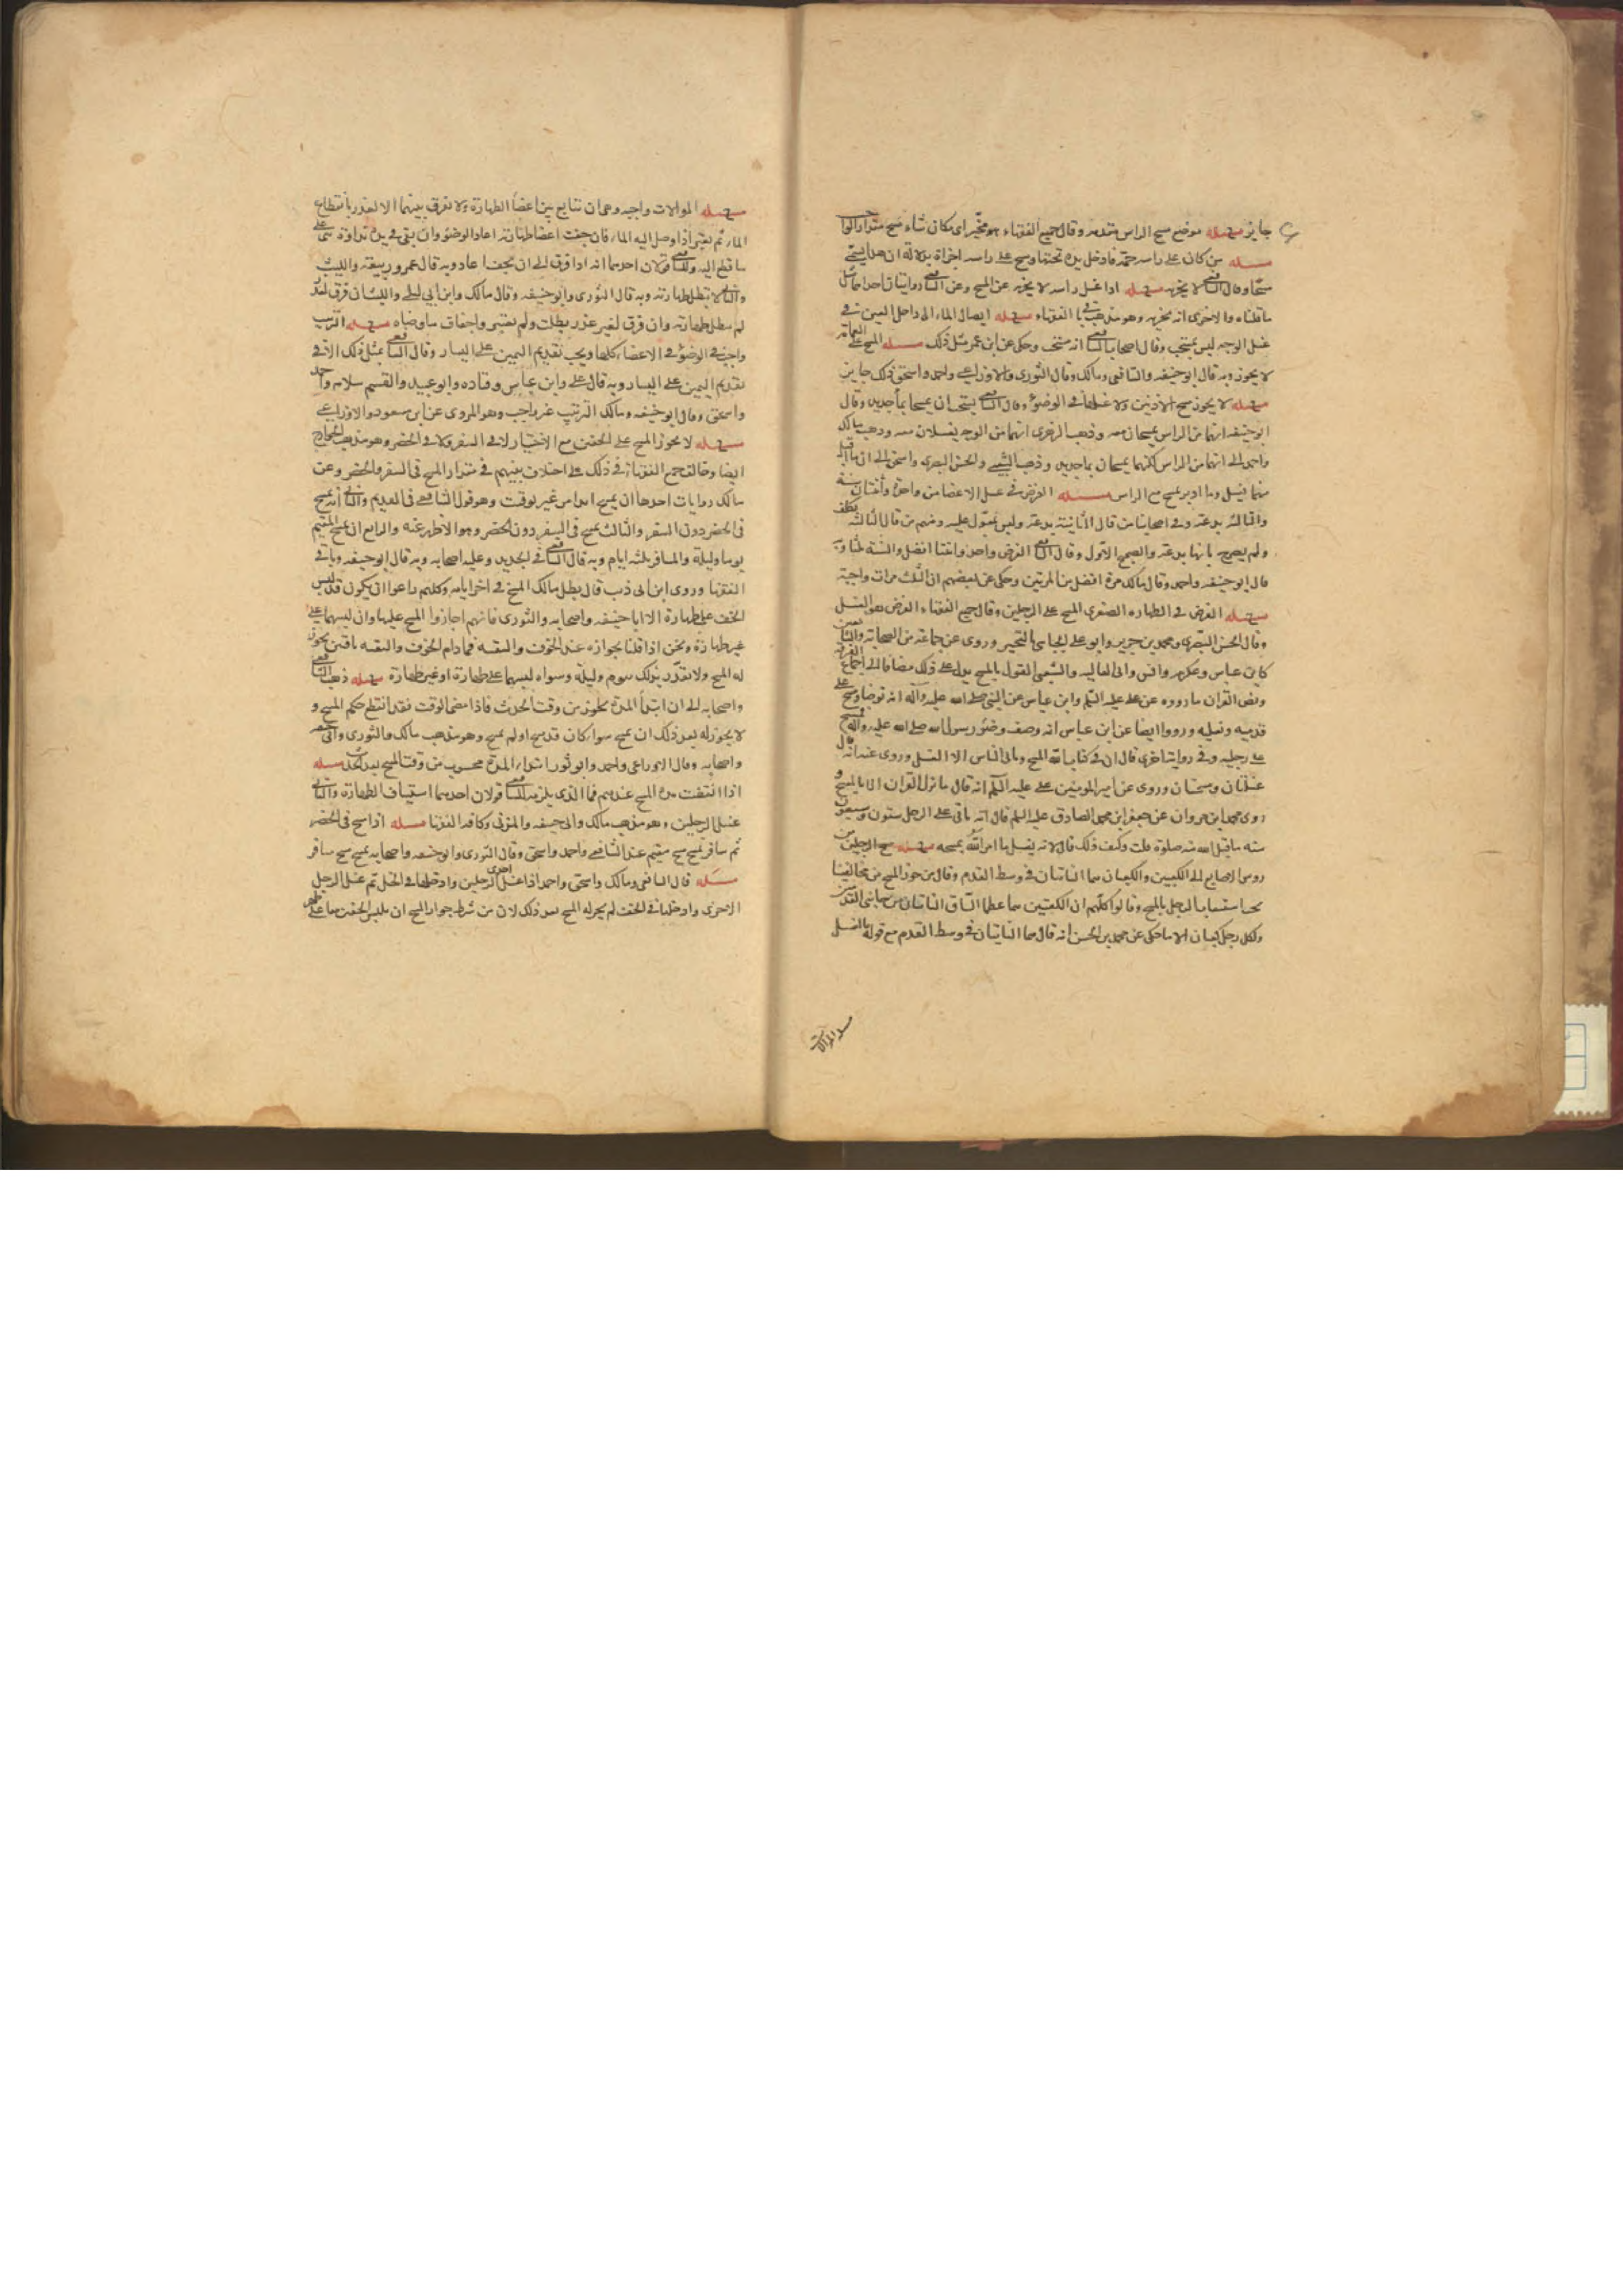 جايز مسئله موضع مسح الراس مقدمه وقال جميع الفقهاء هو مخيّر اى مكان شاء مسح مقدار الواجب
مسئله من كان على راسه جمّة فادخل يده تحتها ومسح على راسه اجزاة دلالة ان هذا يسمّى
مسحًا وقال الشافعى لا يجزيه مسئله اذا غسل راسه لا يجزيه عن المسح وعن الشافعى روايتان احداهما مثل
ما قلناه والاخرى انه يجزيه وهو مذهب باقى الفقهاء مسئله ايصال الماء الى داخل العين فى
غسل الوجه ليس بمستحب وقال اصحاب الشافعى انه مستحب وحكى عن ابن عمر مثل ذلك مسئله المسح على العمامة
لا يجوز وبه قال ابو حنيفه والشافعى ومالك وقال الثورى والاوزاعى واحمد واسحق ذلك جايز
مسئله لا يجوز مسح الاذنين ولا غسلهما فى الوضؤ وقال الشافعى يستحب ان يمسحا بماء جديد وقال
ابو حنيفه انهما من الراس يمسحان معه وذهب الزهرى انهما من الوجه يغسلان معه وذهب مالك
واحمد الى انهما من الراس لكنهما يمسحان بماء جديد وذهب الشعبى والحسن البصرى واسحق الى ان ما اقبل
منهما يغسل وما ادبر يمسح مع الراس مسئله الفرض فى غسل الاعضا مرة واحدة واثنتان سنة
والثالثه بدعة وفى اصحابنا من قال الثانية بدعة وليس بمعوّل عليه ومنهم من قال الثالثة تكلف
ولم يصرح بانها بدعة والصحيح الاوّل وقال الشافعى الفرض واحد واثنتان افضل والسنة ثلثة وبه
قال ابو حنيفه واحمد وقال مالك مرة افضل من المرتين وحكى عن بعضهم ان الثلث مرات واجبة
مسئله الفرض فى الطهارة الصغرى المسح على الرجلين وقال جميع الفقهاء الفرض هو الغسل
وقال الحسن البصرى ومحمد بن جرير وابو على الجبائى بالتخيير وروى عن جماعة من الصحابة والتابعين
كابن عباس وعكرمه وانس وابى العاليه والشعبى القول بالمسح يدل على ذلك مضافا الى اجماع الفرقة
ونص القران ما رووه عن على عليه السلم وابن عباس عن النبى صلى الله عليه وآله انه توضا ومسح على
قدميه ونعليه ورووا ايضا عن ابن عباس انه وصف وضؤ رسول الله صلى الله عليه وآله فمسح
على رجليه وفى رواية اخرى قال ان فى كتاب الله المسح ويابى الناس الا الغسل وروى عنه انه قال
غسلتان ومسحتان وروى عن امير المومنين على عليه السلم انه قال ما نزل القران الا بالمسح و
روى محمد ابن مروان عن جعفر ابن محمد الصادق عليه السلم قال انه ياتى على الرجل ستون وسبعون
سنه ما قبل الله منه صلوة قلت وكيف ذلك قال لانه يغسل ما امر الله بمسحه مسئله مسح الرجلين من
روس الاصابع الى الكعبين والكعبان هما الناتيان فى وسط القدم وقال من جوز المسح من مخالفينا
يجب استيعاب الرجل بالمسح وقالوا كلّهم ان الكعبين هما عظما الساق الناتيان من جانبى القدمين
ولكل رجل كعبان الا ما حكى عن محمد بن الحسن انه قال هما الناتيان فى وسط القدم مع قوله بالغسل
مسئله الموالات
مسئله الموالات واجبه وهى ان تتابع بين اعضأ الطهارة ولا تفرق بينهما الا لعذر بانقطاع
الماء ثم يعتبر اذا وصل اليه الماء فان جفت اعضا طهارته اعاد الوضؤ وان بقى فى يده نداوة بنى على
ما قطع اليه وللشافعى قولان احدهما انه اذا فرق الى ان يجف اعاد وبه قال عمر وربيعة والليث
والثانى لا تبطل طهارته وبه قال الثورى وابو حنيفه وقال مالك وابن ابى ليلى والليث ان فرق لعذر
لم يبطل طهارته وان فرق لغير عذر بطلت ولم يعتبر واجفاف ما وضاه مسئله الترتيب
واجب فى الوضؤ فى الاعضاء كلها ويجب تقديم اليمين على اليسار وقال الشافعى بمثل ذلك الا فى
تقديم اليمين على اليسار وبه قال على وابن عباس وقتاده وابو عبيد والقسم بن سلام واحمد
واسحق وقال ابو حنيفه ومالك الترتيب غير واجب وهو المروى عن ابن مسعود والاوزاعى
مسئله لا يجوز المسح على الخفين مع الاختيار لا فى السفر ولا فى الحضر وهو مذهب الخوارج
ايضا وخالف جميع الفقهاء فى ذلك على اختلاف بينهم فى مقدار المسح فى السفر والحضر وعن
مالك روايات احدها ان يمسح ابدا من غير توقيت وهو قول الشافعى فى القديم والثانى انه يمسح
فى الحضر دون السفر والثالث يمسح فى السفر دون الحضر وهو الاظهر عنه والرابع ان يمسح المقيم
يوما وليلة والمسافر ثلثه ايام وبه قال الشافعى فى الجديد وعليه اصحابه وبه قال ابو حنيفه وباقى
الفقها وروى ابن ابى ذيب قال بطل مالك المسح فى اخر ايامه وكلهم راعوا ان يكون قد لبس
الخف على طهارة الا ابا حنيفه واصحابه والثورى فانهم اجازوا المسح عليها وان لبسهما على
غير طهارة ونحن اذا قلنا بجوازه عند الخوف والتقيه فما دام الخوف والتقيه باقين يجوز
له المسح ولا يقدّر بذلك بيوم وليلة وسواء لبسهما على طهارة او غير طهارة مسئله ذهب الشافعى
واصحابه الى ان ابتدأ المدة يكون من وقت الحدث فاذا مضى الوقت فقد انقطع حكم المسح و
لا يجوز له بعد ذلك ان يمسح سواء كان قد مسح او لم يمسح وهو مذهب مالك والثورى وابى حنيفه
واصحابه وقال الاوزاعى واحمد وابو ثور ابتداء المدة محسوب من وقت المسح بعد الحدث مسئله
اذا انقضت مدة المسح عندهم فما الذى يلزمه للشافعى قولان احدهما استيناف الطهارة والثانى
غسل الرجلين وهو مذهب مالك وابى حنيفه والمزنى وكافة الفقها مسئله اذا مسح فى الحضر
ثم سافر يمسح مسح مقيم عند الشافعى واحمد واسحق وقال الثورى وابو حنيفه واصحابه يمسح مسح مسافر
مسئله قال الشافعى ومالك واسحق واحمد اذا غسل احدى الرجلين وادخلها فى الخف ثم غسل الرجل
الاخرى وادخلها فى الخف لم يجز له المسح بعد ذلك لان من شرط جواز المسح ان يلبس الخفين معا على طهر